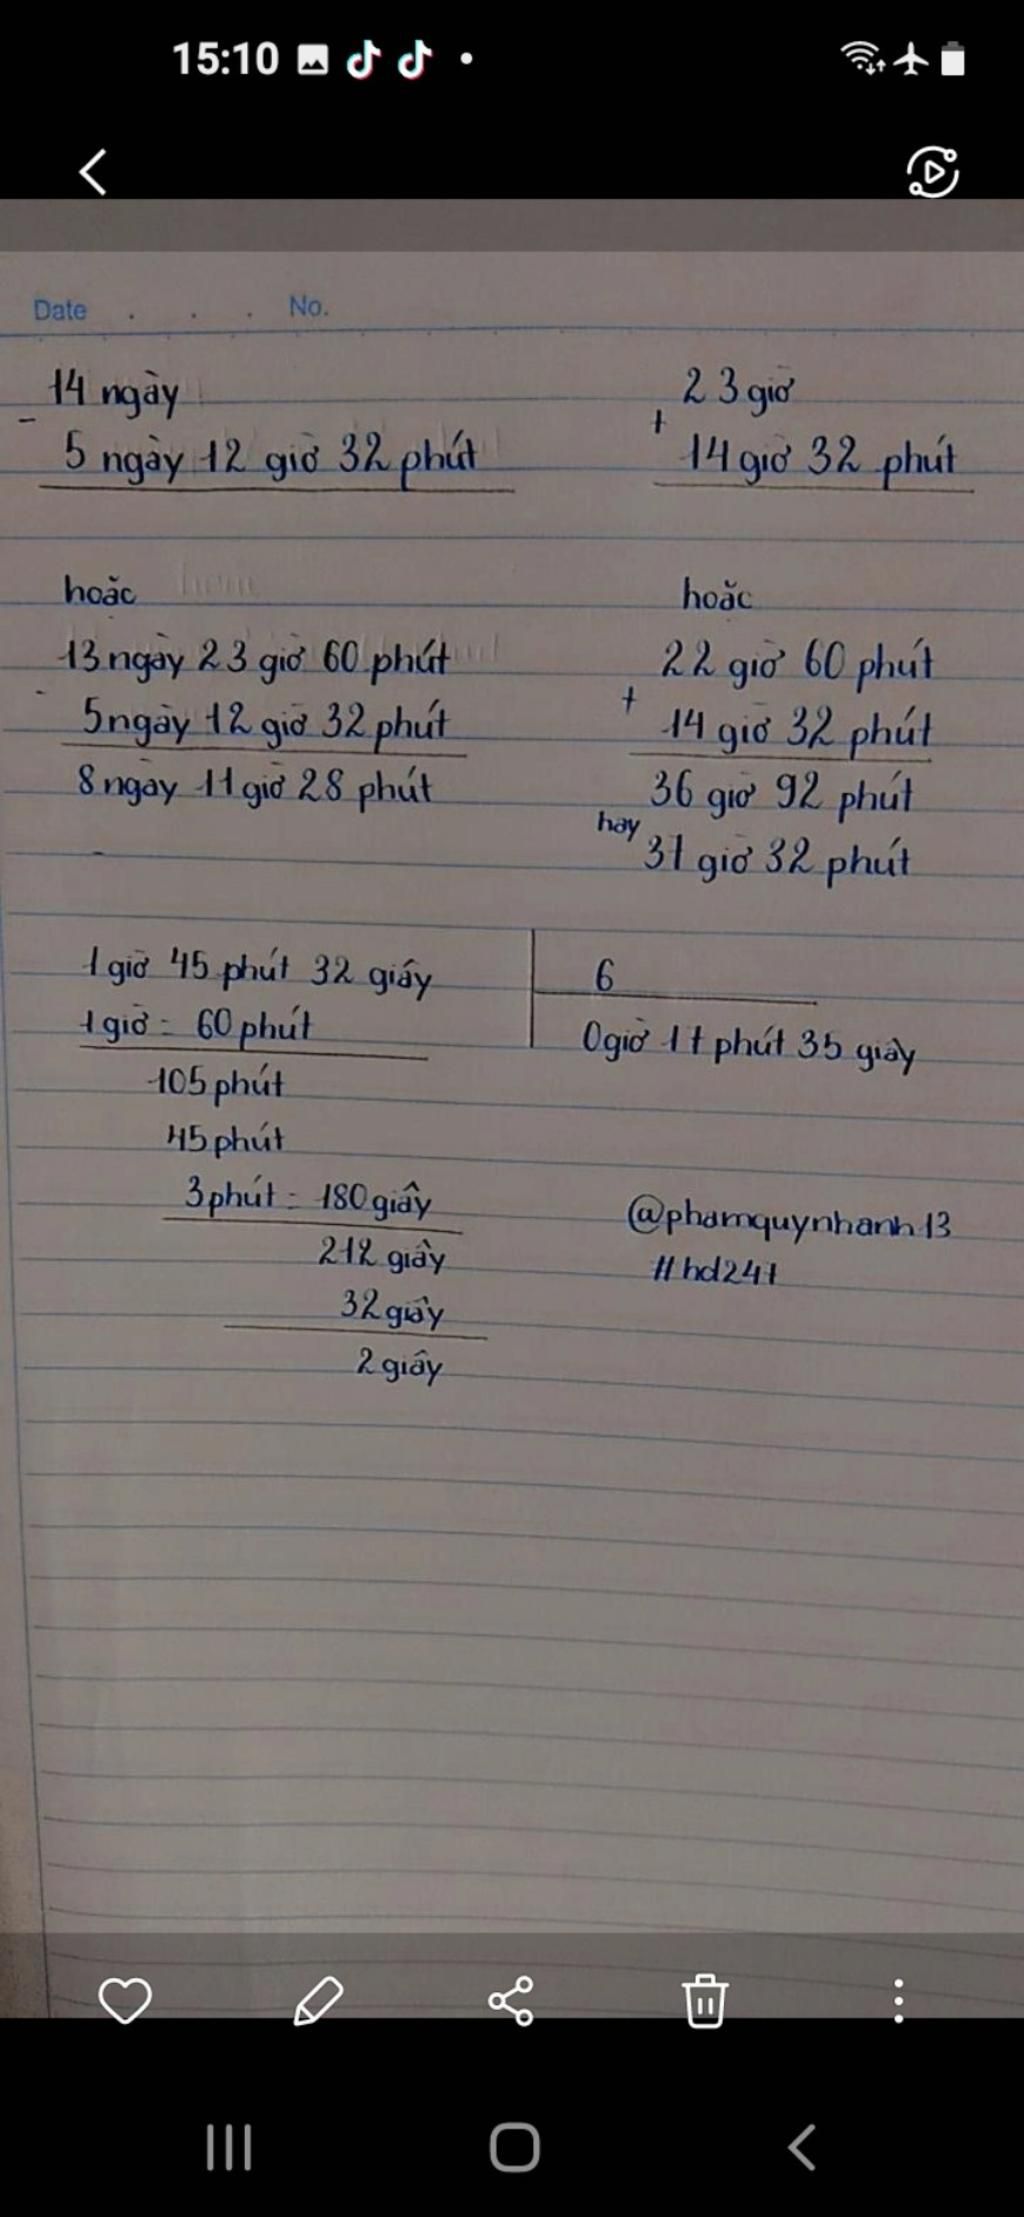 15:10
Date . . . No.
14 ngày
-
5 ngày 12 giờ 32 phút
23 giờ
+
14 giờ 32 phút
hoặc
13 ngày 23 giờ 60 phút
-
5 ngày 12 giờ 32 phút
8 ngày 11 giờ 28 phút
hoặc
22 giờ 60 phút
+
14 giờ 32 phút
36 giờ 92 phút
hay
37 giờ 32 phút
1 giờ 45 phút 32 giây
6
1 giờ = 60 phút
0 giờ 17 phút 35 giây
105 phút
45 phút
3 phút = 180 giây
212 giây
32 giây
2 giây
@phamquynhanh13
#hd247